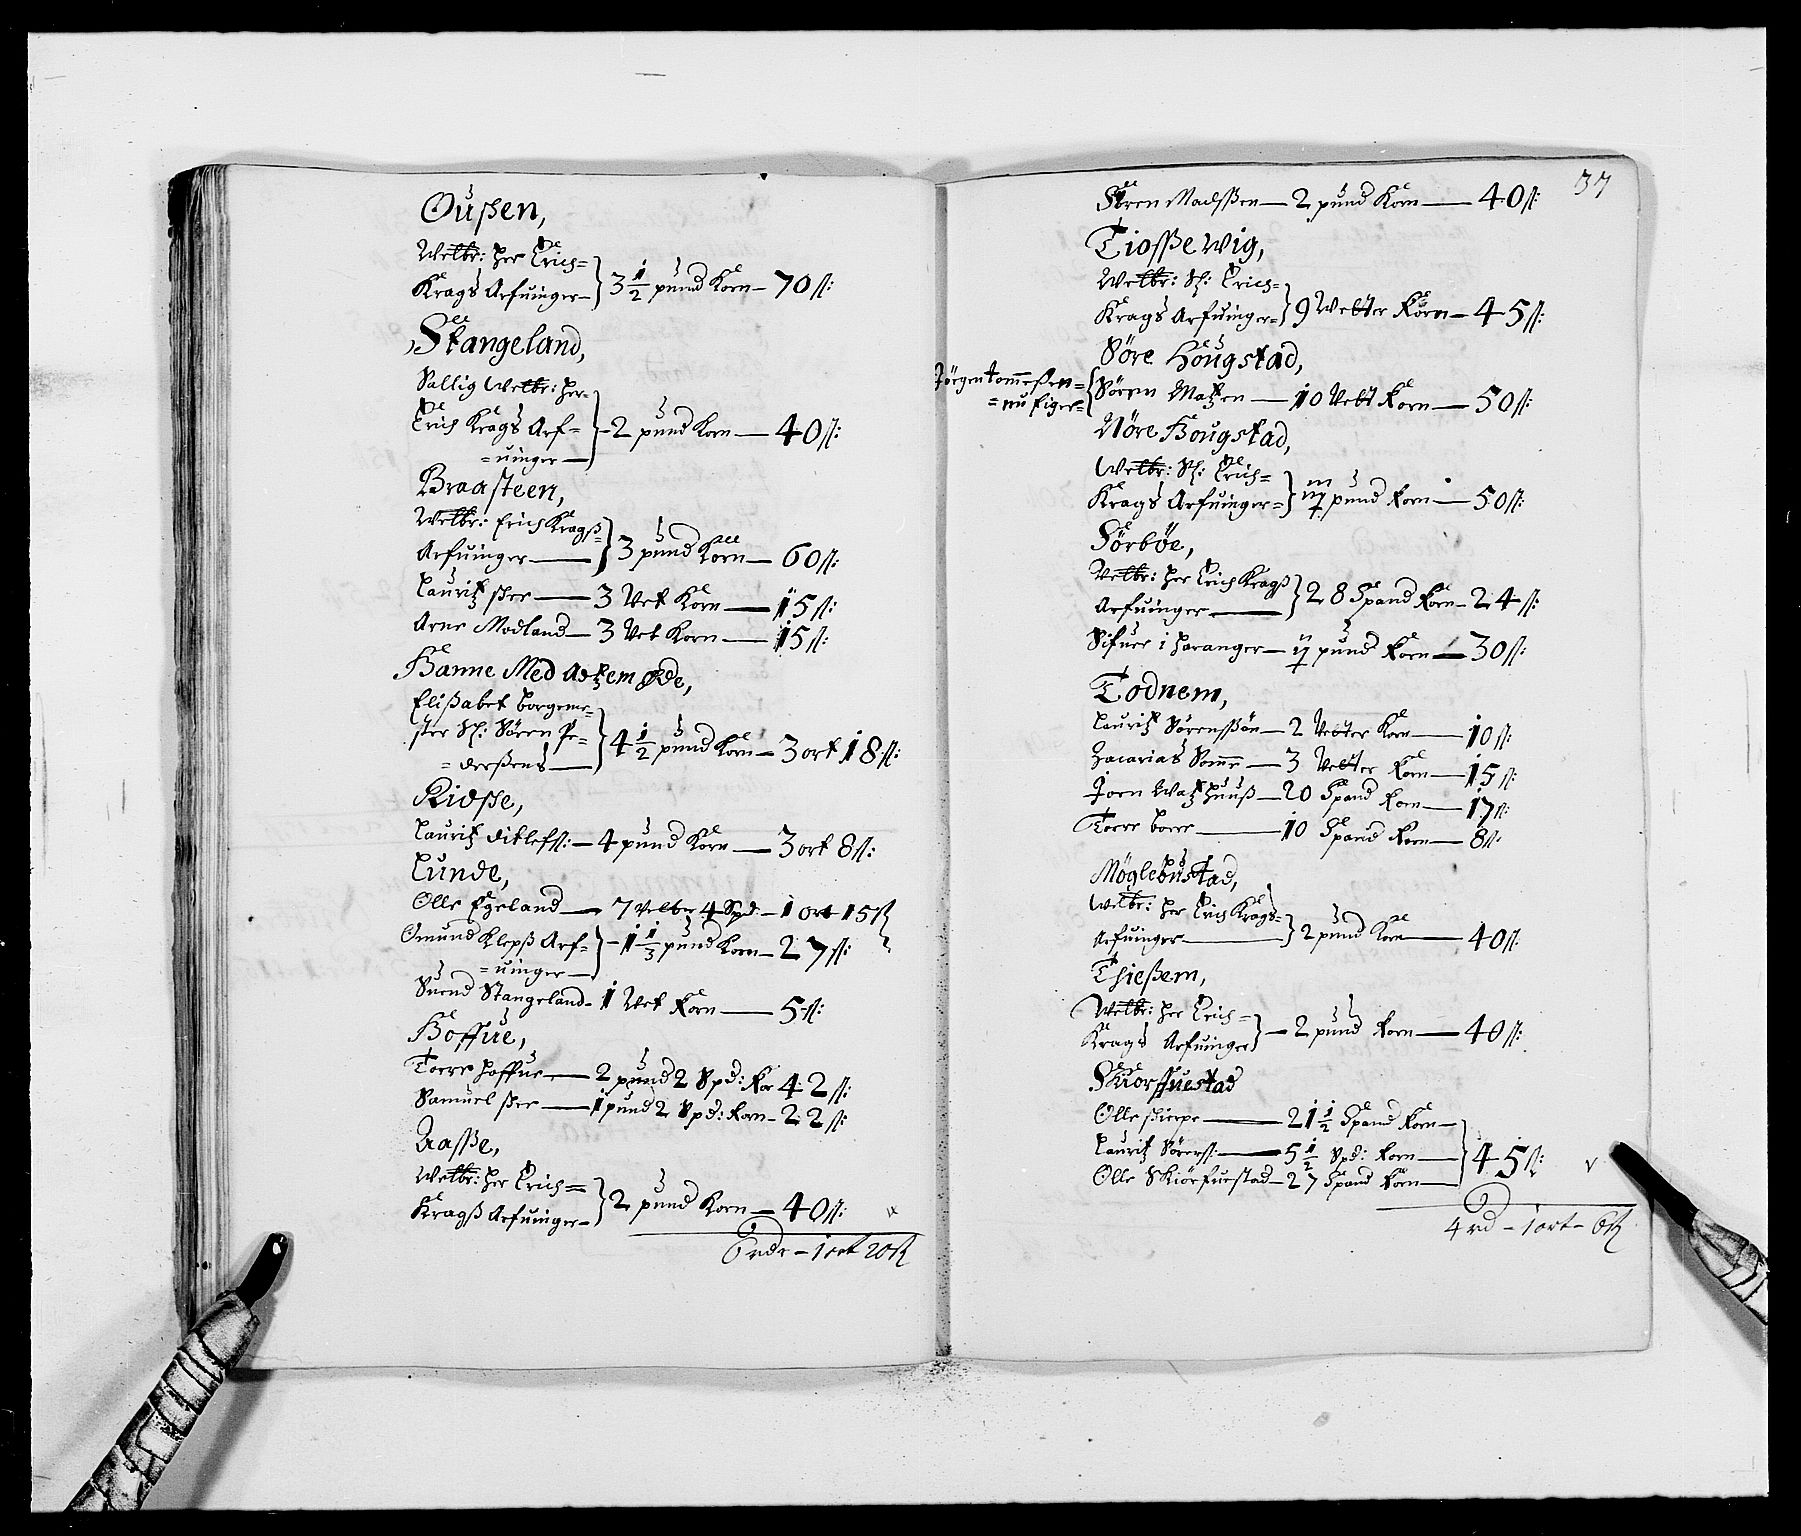 Oußen,
Welbr: her Erich=
Krags Arfuinger — 3 1/2 pund Korn — 70 ß:
Stangeland,
Sallig Welbr: her=
Erich Krags Arf= — 2 pund Korn — 40 ß:
= uinger —
Braasteen,
Welbr: Erich Kragß=
Arfuinger — 3 pund Korn — 60 ß:
Lauritz — 3 Vet Korn — 15 ß:
Arne Modland — 3 Vet Korn — 15 ß:
Hanne Med Øde,
Elißabet borgeme=
ster Sl: Sören Pe= — 4 1/2 pund Korn — 3 ort 18 ß:
= derßens —
Kioße,
Lauritz Ditlefß: — 4 pund Korn — 3 ort 8 ß:
Lunde,
Olle Egeland — 7 Vetter 4 Spd: — 1 ort 15 ß
Omund Klepß Arf= — 1 1/3 pund Korn — 27 ß:
= uinger —
Suend Stangeland — 1 Vet Korn — 5 ß:
Hoffue,
Torre hoffue — 2 pund 2 Spd: Kor 42 ß:
Samuel — 1 pund 2 Spd: Korn — 22 ß:
Aaßße,
Welbr: her Erich =
Kragß Arfuinger — 2 pund Korn — 40 ß:
6 rdr — 1 ort 20 ß
37
Sören Madßßen — 2 pund Korn — 40 ß:
Tioßßewig,
Welbr: Sl: Erich=
Krags Arfuinger = 9 Vetter Korn — 45 ß:
Söre Hougstad,
Jörgen tommeßen =
= nu Eiger =
Sören Matzen — 10 Vett Korn — 50 ß:
Nöre Hougstad,
Welbr: Sl: Erich=
Krags Arfuinger = pund Korn — 50 ß:
Sörböe,
Welbr: her Erich Kragß
Arfuinger — 28 Spand Korn — 24 ß:
Sifuer i haranger — pund Korn — 30 ß:
Todnem,
Lauritz Sörenßßön — 2 Vetter Korn — 10 ß:
Zacarias Somme — 3 Vetter Korn — 15 ß:
Jorn Watzhuuß — 20 Spand Korn — 17 ß:
Torre borre — 10 Spand Korn — 8 ß:
Möglebustad,
Welbr: her Erich Krags=
Arfuinger — 2 pund Korn — 40 ß:
Thießem,
Welbr: her Erich =
Krags Arfuinger — 2 pund Korn — 40 ß:
Skiorffuestad
Olle — 21 1/2 Spand Korn —
Lauritz Sörenß: — 5 1/2 Spd: Korn — 45 ß:
Olle Skiörfuestad — 27 Spand Korn —
4 rd — 1 ort — 6 ß